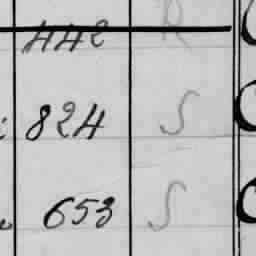 442 R
824 S
653 S